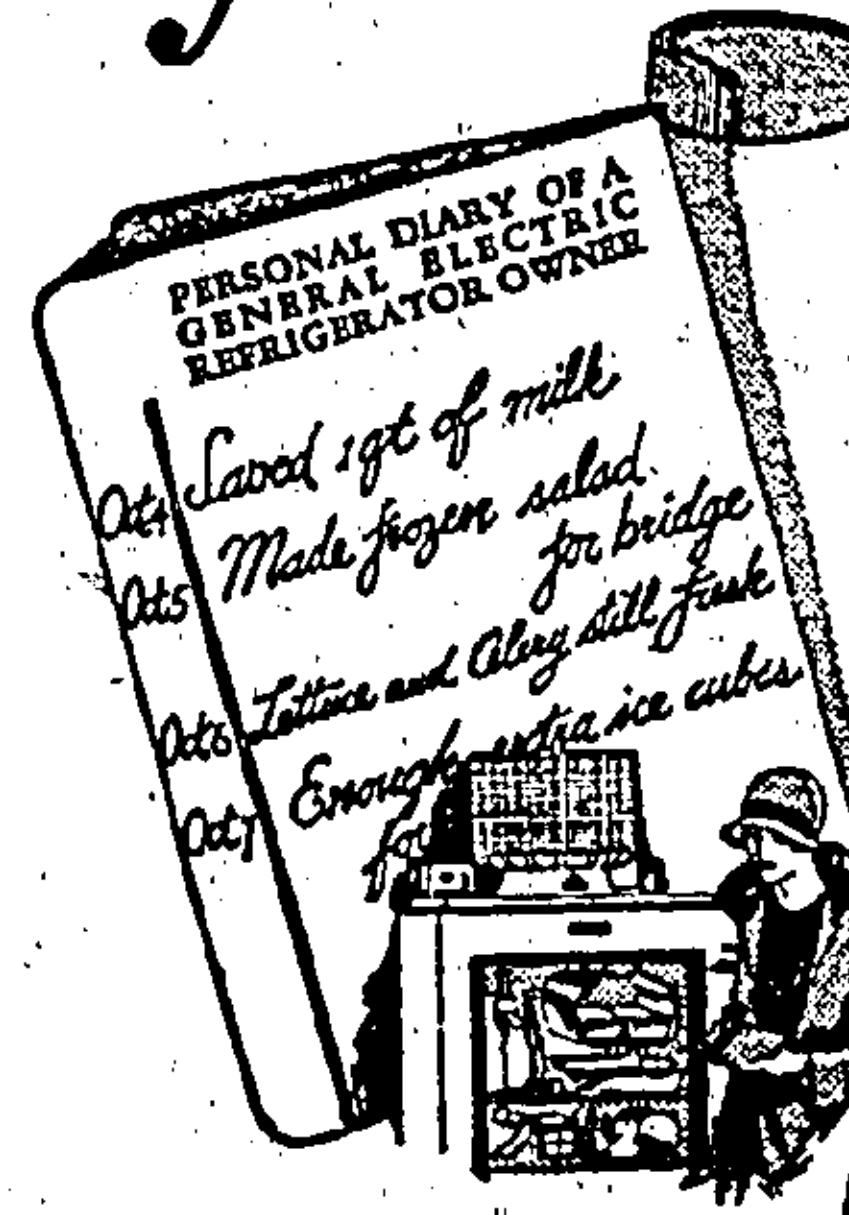 PERSONAL DIARY OF A
GENERAL ELECTRIC
REFRIGERATOR OWNER
Oct 4 Saved 1 qt of milk
Oct 5 Made frozen salad
for bridge
Oct 6 Lettuce and Celery still fresh
Oct 7 Enough extra ice cubes
for